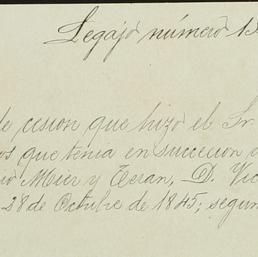 Legajo número 13
de cesion que hizo el Sr
os que tenia en succecion
Mier y Teran, D. Vic
28 de Octubre de 1845; segun